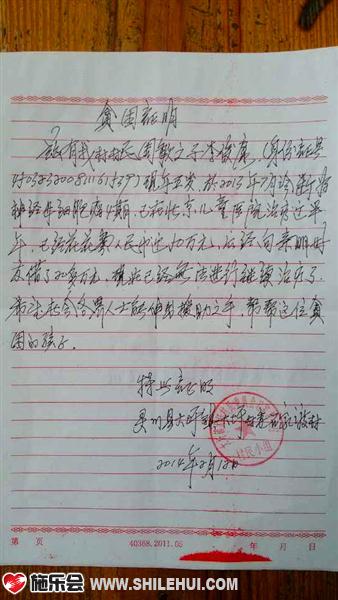 贫困证明
兹有我村村民周敏之子李俊廉(身份证号
现年五岁,于2013年7月诊断为
神经母细胞瘤4期,已在北京儿童医院治疗近半
年,已经花费人民币近40万元,已经向亲朋好
友借了20多万元,现在已经无法进行继续治疗了
希望社会各界人士能伸出援助之手,帮帮这位贫
困的孩子.
特此证明
灵川县大圩镇
村民小组
2014年2月12日
第 页
40368.2011.05
年 月 日
施乐会 WWW.SHILEHUI.COM